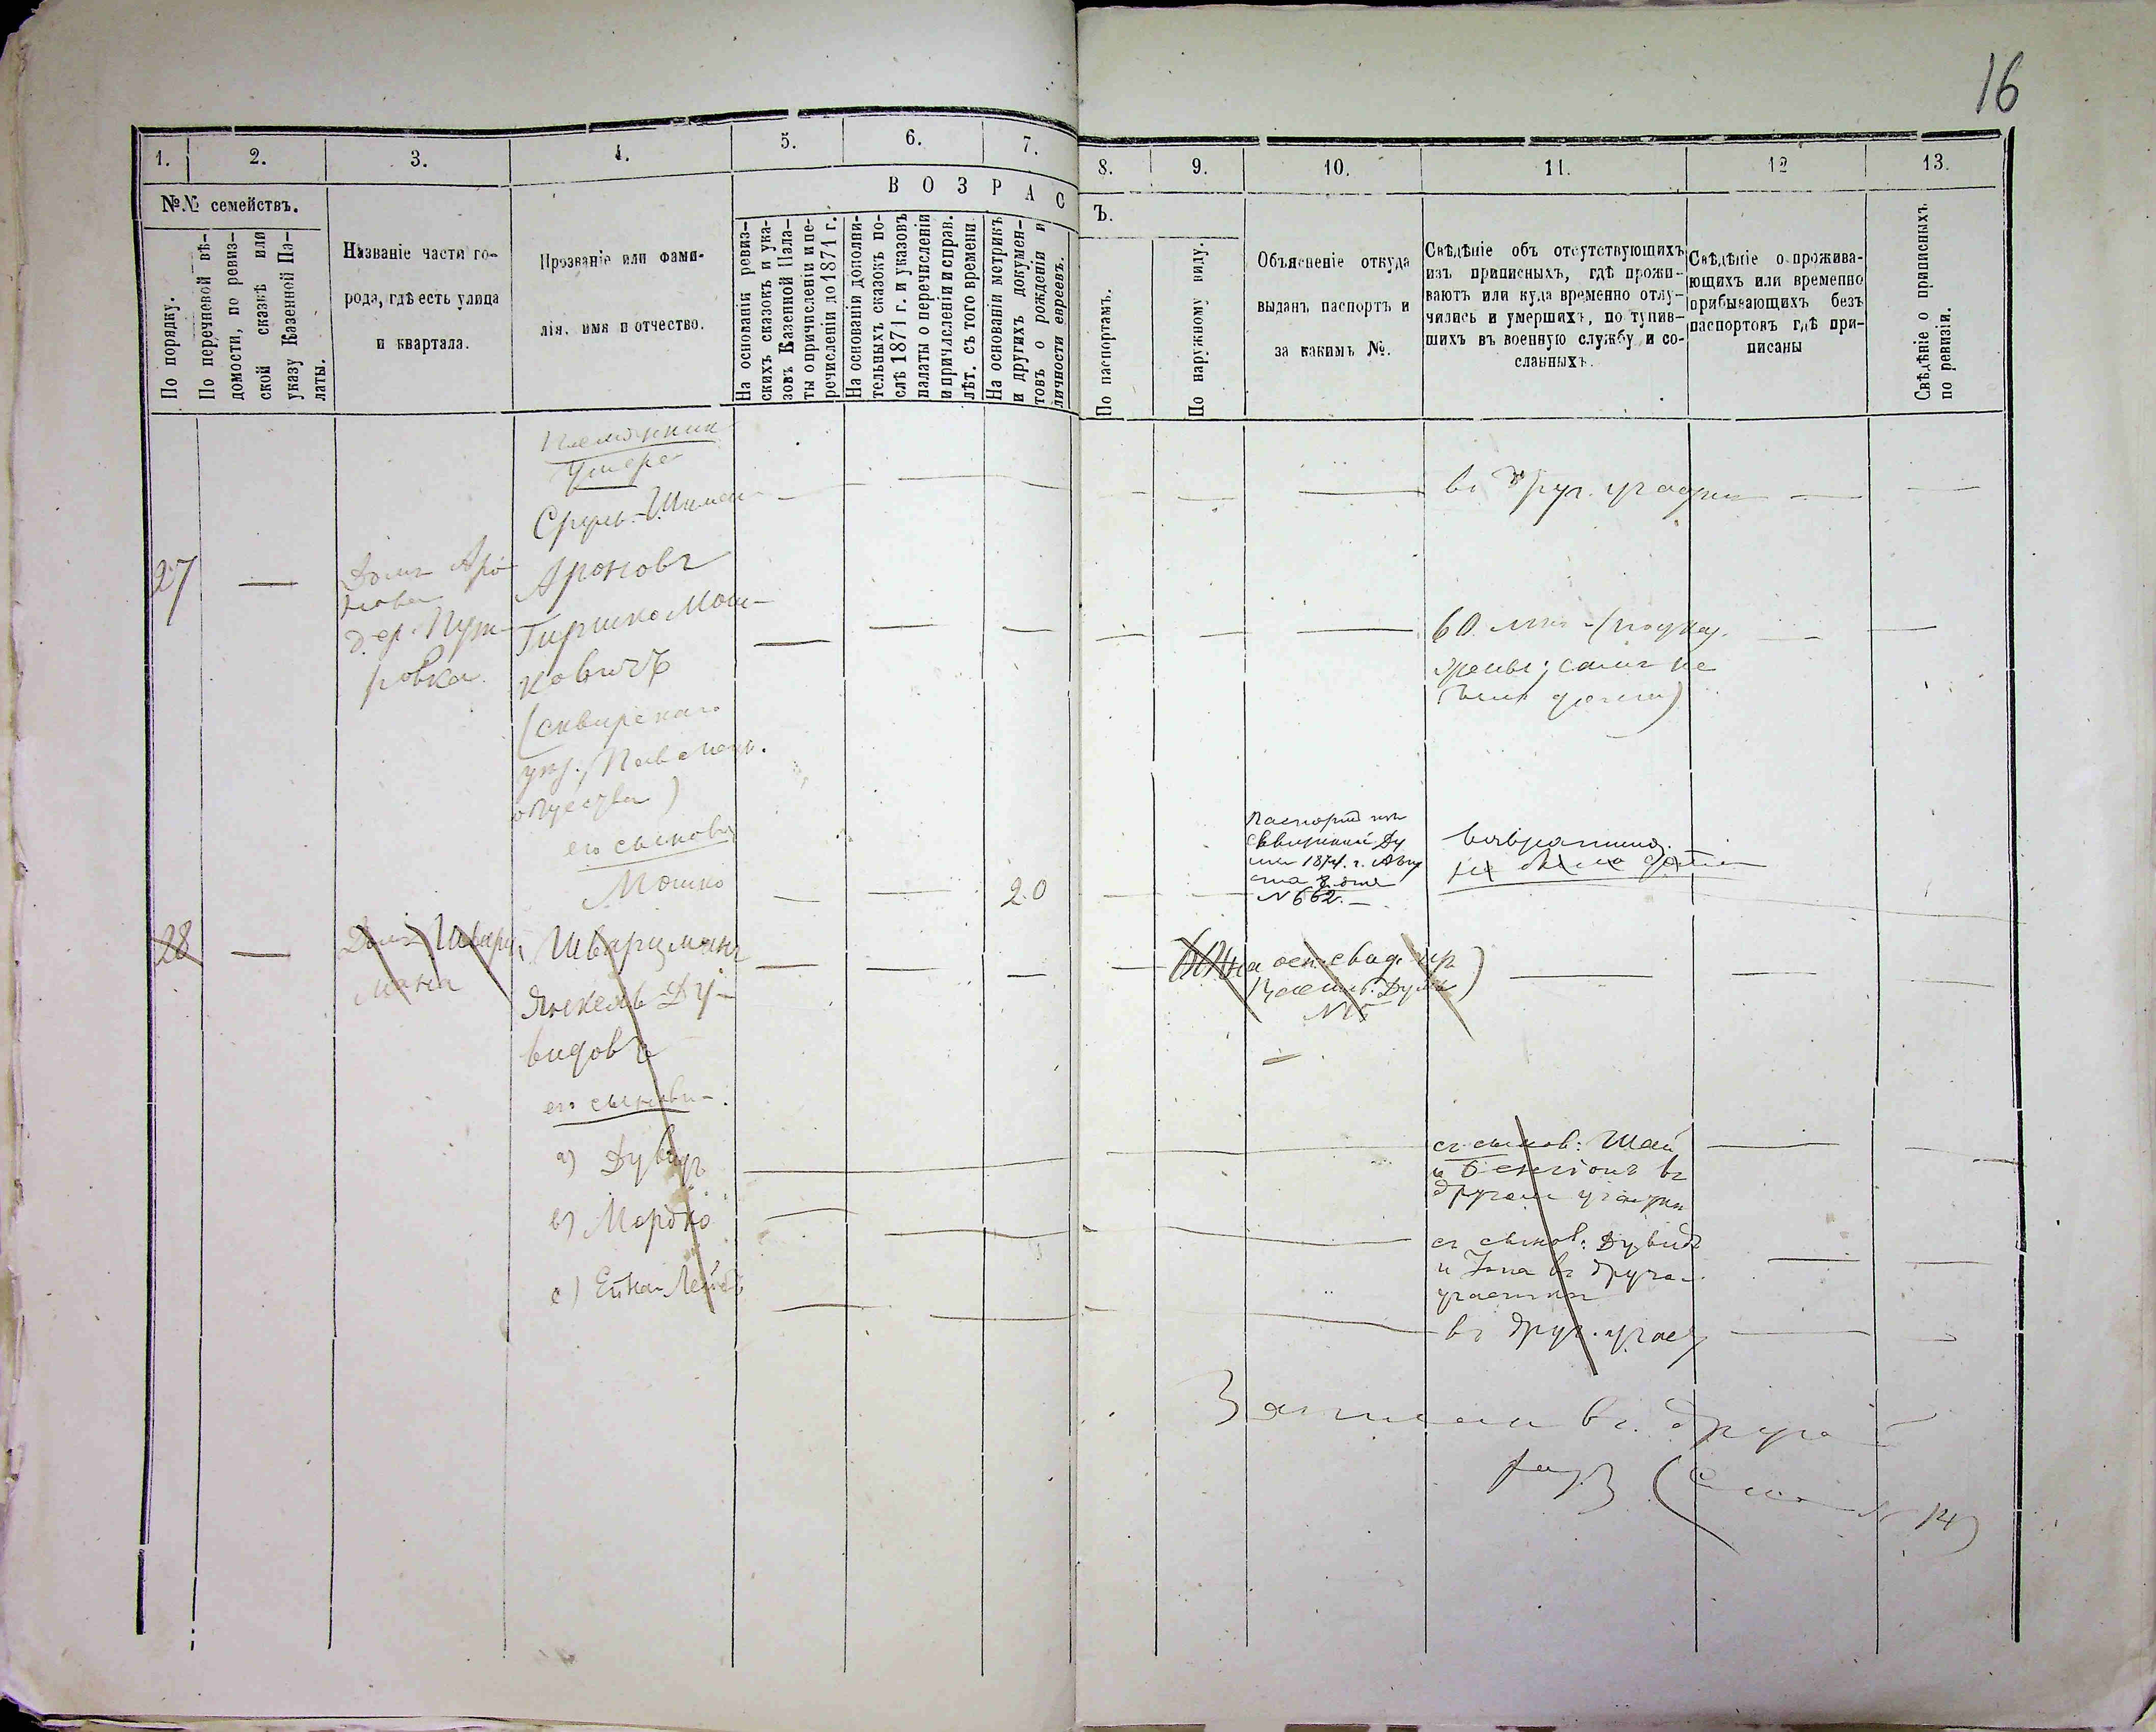 16
1.
2.
3.
4.
5.
6.
7.
8.
9.
10.
11.
12
13.
№№ семействъ.
По порядку.
По перечневой вѣ-
домости, по ревиз-
ской сказкѣ или
указу Казенной Па-
латы.
Названіе части го-
рода, гдѣ есть улица
и квартала.
Прозваніе или фами-
лія, имя и отчество.
ВОЗРАС
Ъ.
На основаніи ревиз-
скихъ сказокъ и ука-
зовъ Казенной Пала-
ты о причисленіи и пе-
речисленіи до 1871 г.
На основаніи дополни-
тельныхъ сказокъ по-
слѣ 1871 г. и указовъ
палаты о перечисленіи
и причисленіи и справ.
лѣт. съ того времени.
На основаніи метрикъ
и другихъ докумен-
товъ о рожденіи и
личности евреевъ.
По паспортамъ.
По наружному виду.
Объясненіе откуда
выданъ паспортъ и
за какимъ №.
Свѣдѣніе объ отсутствующихъ
изъ приписныхъ, гдѣ прожи-
ваютъ или куда временно отлу-
чились и умершихъ, по тупив-
шихъ въ военную службу и со-
сланныхъ.
Свѣдѣніе о прожива-
ющихъ или временно
прибывающихъ безъ
паспортовъ гдѣ при-
писаны
Свѣдѣніе о приписныхъ
по ревизіи.
Сруль-Шимон
въ друг. участки
27
Домъ Аро-
нова
дер. Пуш-
ровка
Ароновъ
Гершко Мош-
ковичъ
(сквирскаго
уѣз. Паволоч.
общества)
60 лѣтъ (по указ.
жены; самъ не
былъ дома)
его сыновья
Мошко
20
Паспортъ изъ
Сквирской Ду
мы 1874 г. Авгу
ста 8 дня
№ 662.
возвратился.
не было дома
28
Домъ Шварц
мана
Шварцманъ
Янкель Ду-
видовъ
№ 15
его сыновья
а) Дувидъ
съ сынов: Шай
и Бенціонъ въ
другомъ участкѣ
в) Мордко
съ сынов: Дувидъ
и Іона въ друго-
участкѣ
с) Ейна-Лейбъ
въ друг. участ
Записанъ въ другой
разъ (см № 14)